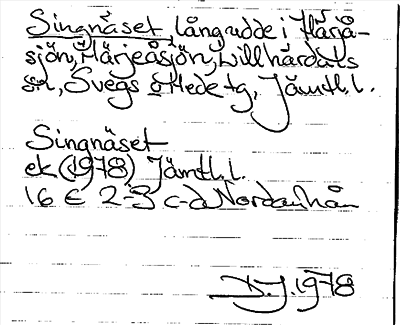 Singnäset, långudde i Härjå-
sjön, Härjeåsjön, Lillhärdals
sn, Svegs o Hede tg, Jämtl. l.
Singnäset
ek (1978) Jämtl. l.
16 E 2-3 c-d Nordanhån
D.J 1978